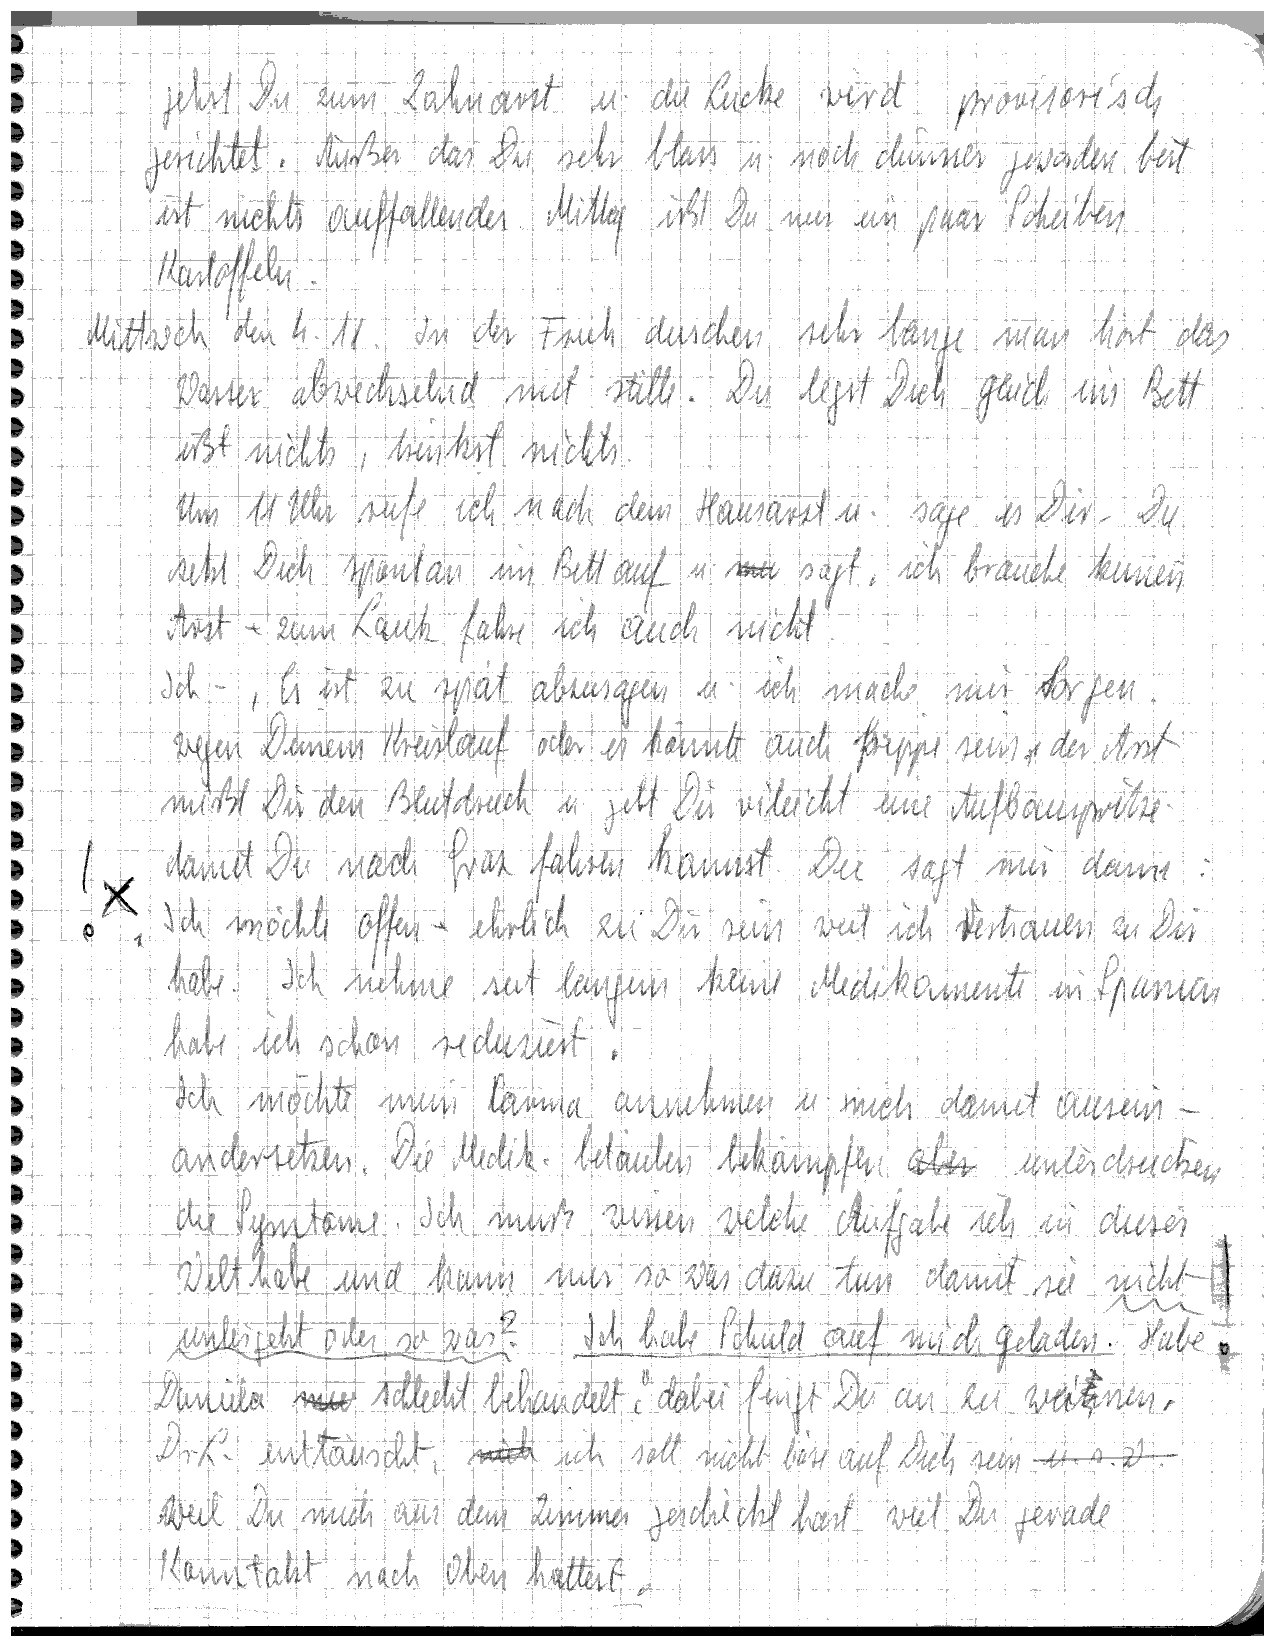 gehst Du zum Zahnarzt u. die Lücke wird provisorisch
gerichtet. Außer das Du sehr blass u. noch dünner geworden bist
ist nichts auffallendes Mittag ißt Du nur ein paar Scheiben
Kartoffeln.
Mittwoch den 4. 11. In der Früh duschen sehr lange man hört das
Wasser abwechselnd mit stille. Du legst Dich gleich ins Bett
ißt nichts, trinkst nichts.
Um 11 Uhr rufe ich nach dem Hausarzt u. sage es Dir - Du
setzt Dich spontan im Bett auf u. sagt, ich brauche keinen
Arzt - zum Lauk fahre ich auch nicht
Ich -, Es ist zu spät abzusagen u. ich mache mir Sorgen.
wegen Deinem Kreislauf oder es könnte auch Grippe sein, der Arzt
mißt Dir den Blutdruck u gebt Dir vileicht eine Aufbauspritze
damit Du nach Graz fahren kannst. Du sagt mir dann :
! x Ich möchte offen - ehrlich zu Dir sein weil ich Vertrauen zu Dir
habe. Ich nehme seit langem keine Medikamente in Spanien
habe ich schon reduziert.
Ich möchte mein Karma annehmen u mich damit ausein-
andersetzen. Die Medik. betäuben bekämpfen aber unterdrücken
die Symtome. Ich muß wissen welche Aufgabe ich in dieser
Welt habe und kann nur so was dazu tun damit sie nicht !
untergeht oder so was? Ich habe Schuld auf mich geladen. Habe
Daniela schlecht behandelt," dabei fingst Du an zu weinen.
Dr. L. enttäuscht, ich soll nicht böse auf Dich sein u. s. w.
weil Du mich aus dem Zimmer geschickt hast weil Du gerade
Konntakt nach Oben hattest.